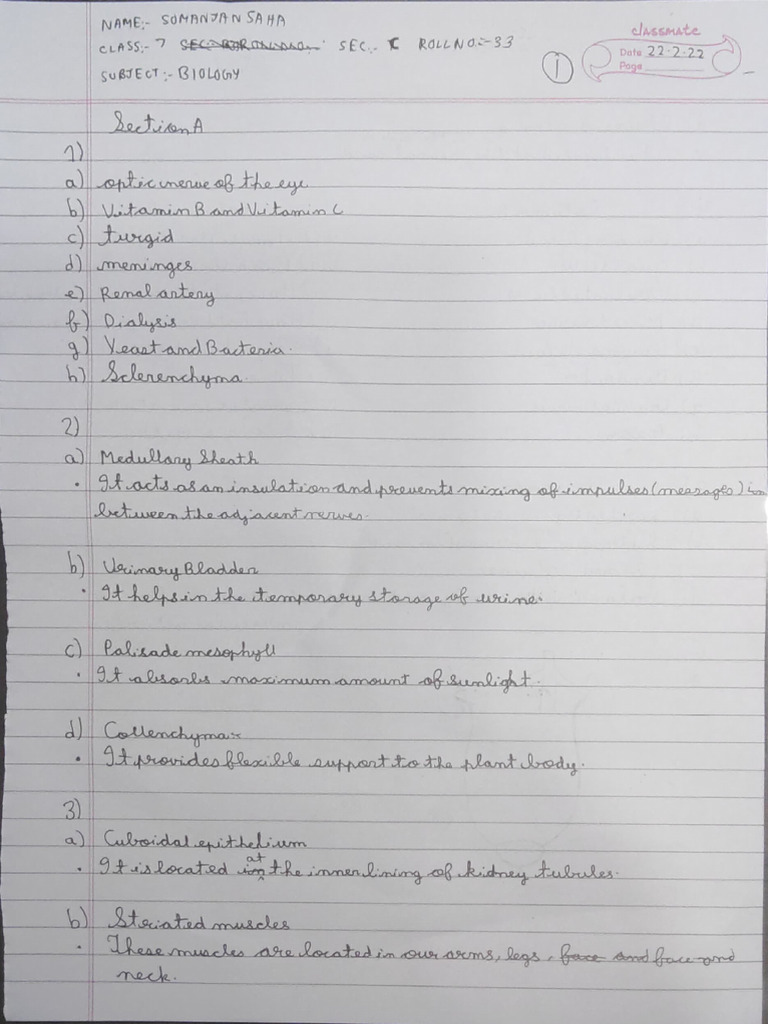 NAME:- SOMANJAN SAHA
CLASS:- 7 SEC:- I ROLL NO:-33
SUBJECT:- BIOLOGY
classmate
Date 22-2-22
Page
1
Section A
1)
a) optic nerve of the eye
b) Vitamin B and Vitamin C
c) turgid
d) meninges
e) Renal artery
f) Dialysis
g) Yeast and Bacteria.
h) Sclerenchyma.
2)
a) Medullary Sheath
• It acts as an insulation and prevents mixing of impulses (messages) in
between the adjacent nerves.
b) Urinary Bladder
• It helps in the temporary storage of urine.
c) Palisade mesophyll
• It absorbs maximum amount of sunlight.
d) Collenchyma:-
• It provides flexible support to the plant body.
3)
a) Cuboidal epithelium
• It is located at the inner lining of kidney tubules.
b) Striated muscles
• These muscles are located in our arms, legs, face and
neck.